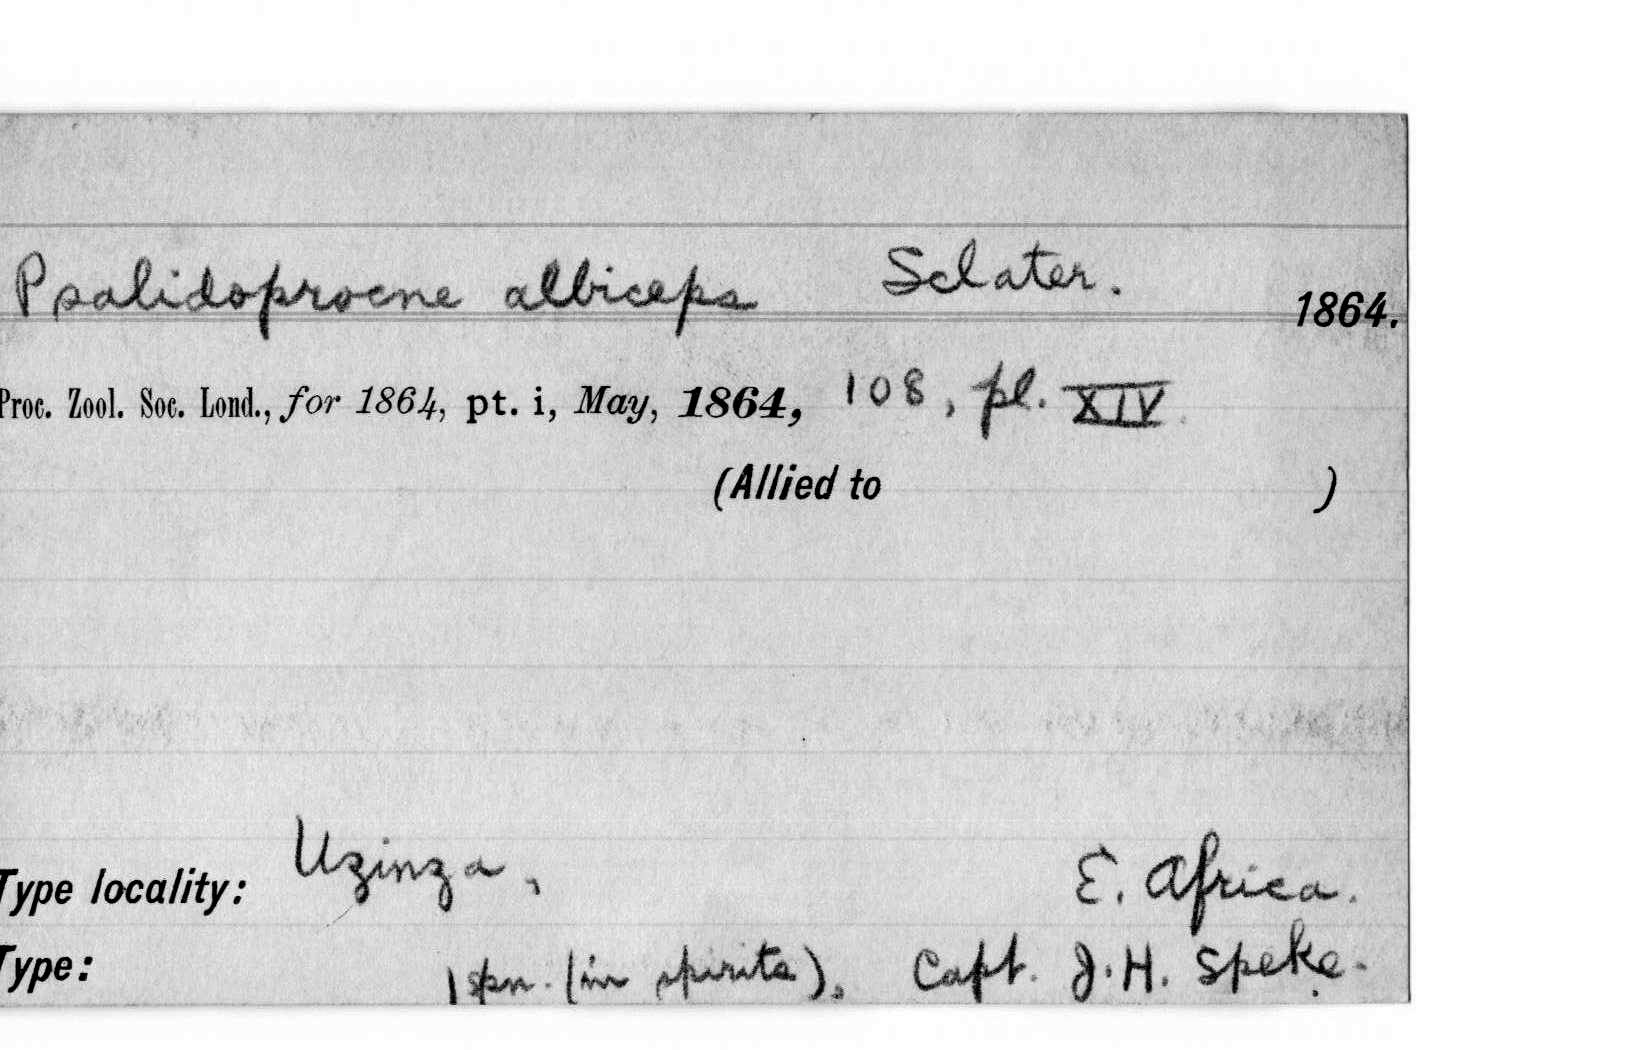 Psalidoprocne albiceps Sclater. 1864.
Proc. Zool. Soc. Lond., for 1864, pt. i, May, 1864, 108, pl. XIV.
(Allied to )
Type locality: Uzinza, E. Africa.
Type: 1 spn. (in spirits), Capt. J. H. Speke.